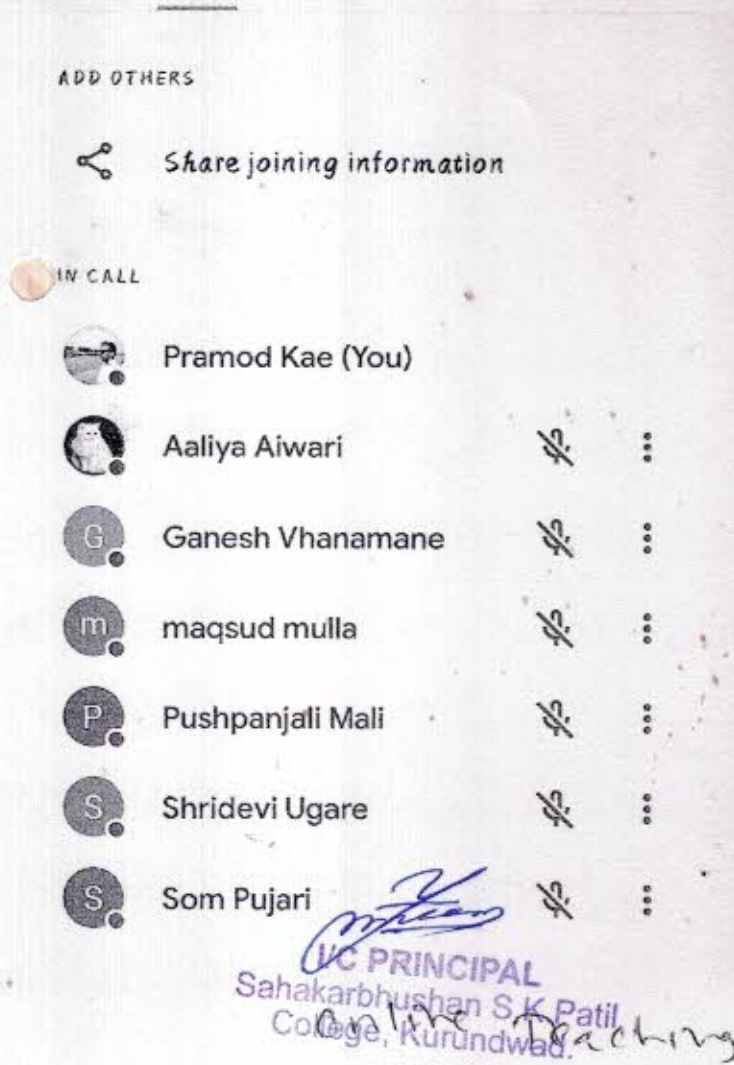 ADD OTHERS
Share joining information
IN CALL
Pramod Kae (You)
Aaliya Aiwari
G Ganesh Vhanamane
m maqsud mulla
P Pushpanjali Mali
S Shridevi Ugare
S Som Pujari
I/C PRINCIPAL
Sahakarbhushan S.K.Patil
College, Kurundwad.
Online Teaching